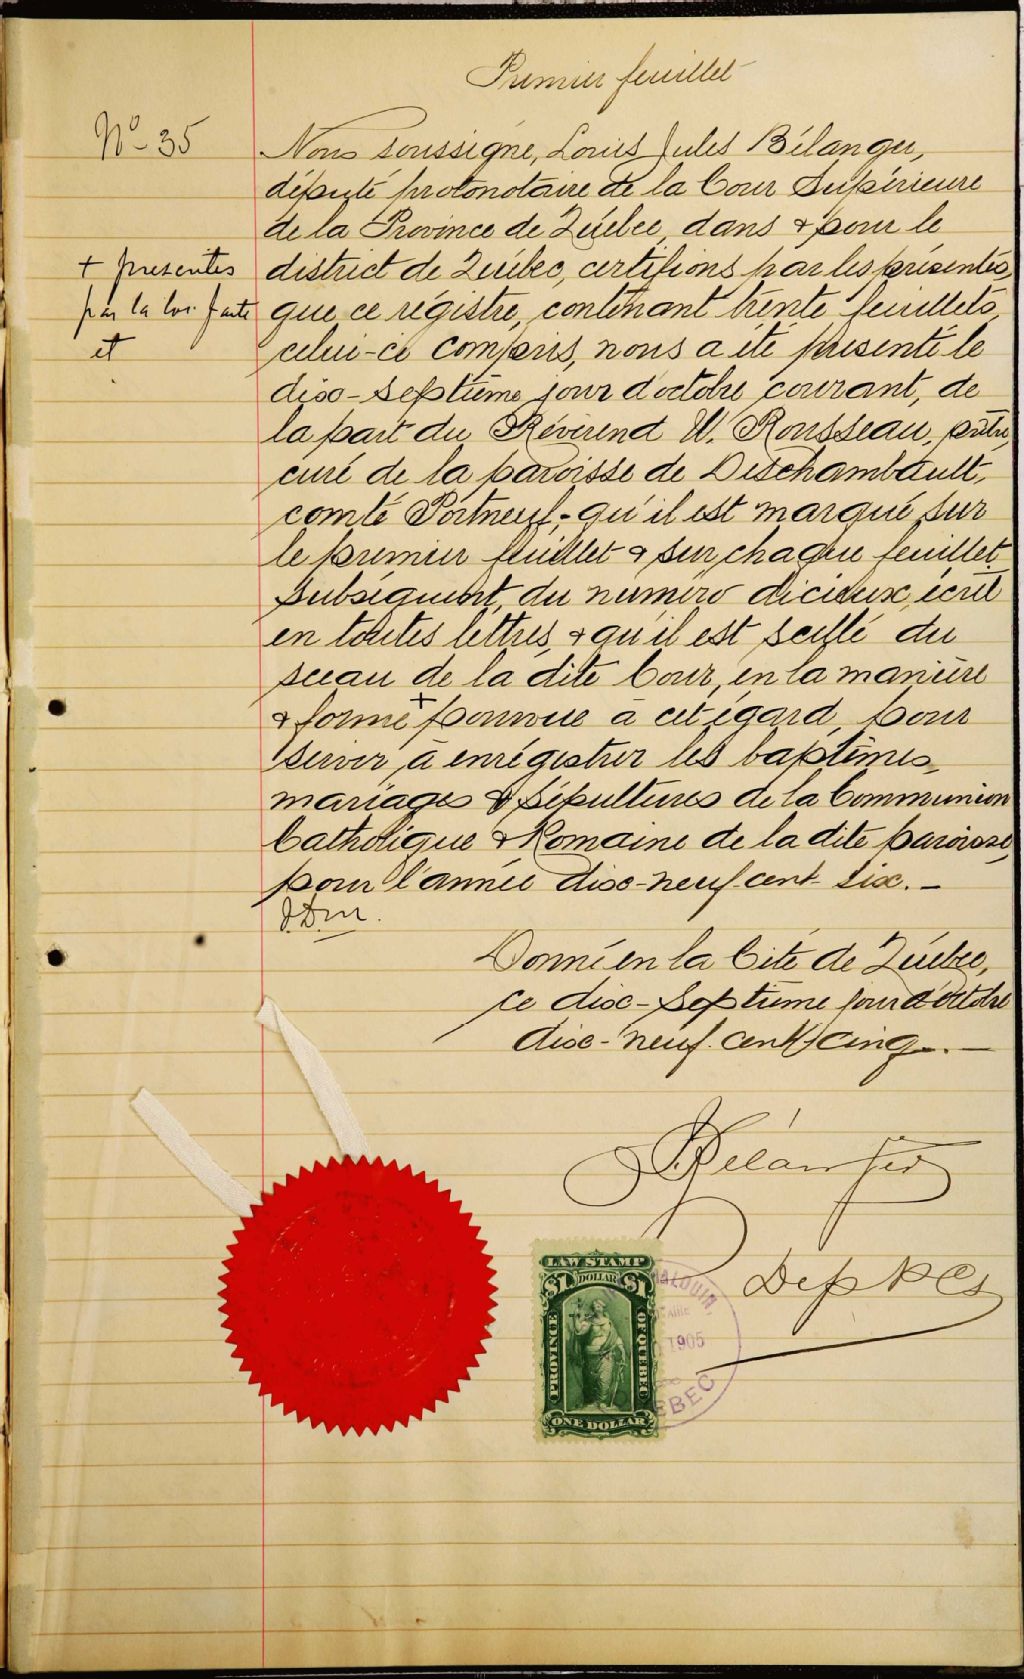 Premier feuillet
No 35
Nous soussigné, Louis Jules Bélanger,
député protonotaire de la Cour Supérieure
de la Province de Québec, dans & pour le
district de Québec, certifions par les présentes,
que ce régistre, contenant trente feuillets,
celui-ci compris, nous a été présenté le
dix-septième jour d'octobre courant, de
la part du Révérend W. Rousseau, prêtre,
curé de la paroisse de Deschambault,
comté Portneuf, qu'il est marqué sur
le premier feuillet & sur chaque feuillet
subséquent, du numéro d'iceux, écrit
en toutes lettres, & qu'il est scellé du
sceau de la dite Cour, en la manière
& forme + pourvue à cet égard, pour
servir à enrégistrer les baptêmes,
mariages & sépultures de la Communion
Catholique & Romaine de la dite paroisse,
pour l'année dix-neuf cent six. —
+ presentes
par la loi faite
et
Donné en la Cité de Québec,
ce dix-septième jour d'octobre
dix-neuf cent cinq. —
Bélanger
Dep P C S
LAW STAMP
$1 DOLLAR $1
PROVINCE OF QUEBEC
ONE DOLLAR
1905